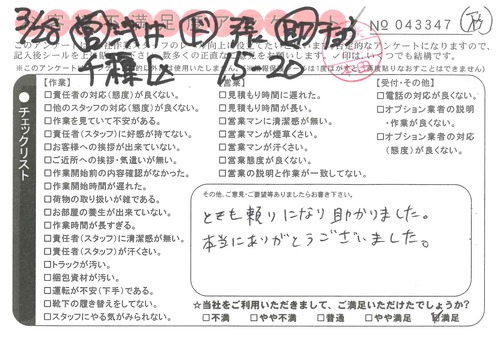 3/28
千種区 1.5-26
№ 043347
このアンケートは
記入後シールを上
【作業】
□責任者の対応(態度)が良くない。
□他のスタッフの対応(態度)が良くない。
□作業を見ていて不安がある。
□責任者(スタッフ)に好感が持てない。
□お客様への挨拶が出来ていない。
□ご近所への挨拶・気遣いが無い。
□作業開始前の内容確認がなかった。
□作業開始時間が遅れた。
□荷物の取り扱いが雑である。
□お部屋の養生が出来ていない。
□作業時間が長すぎる。
□責任者(スタッフ)に清潔感が無い。
□責任者(スタッフ)が汗くさい。
□トラックが汚い。
□梱包資材が汚い。
□運転が不安(下手)である。
□靴下の履き替えをしてない。
□スタッフにやる気がみられない。
【営業】
□見積もり時間に遅れた。
□見積もり時間が長い。
□営業マンに清潔感が無い。
□営業マンが煙草くさい。
□営業マンが汗くさい。
□営業態度が良くない。
□営業の説明と作業が一致してない。
【受付・その他】
□電話の対応が良くない。
□オプション業者の説明
・作業が良くない。
□オプション業者の対応
(態度)が良くない。
チェックリスト
その他、ご意見・ご要望等ありましたらお書き下さい。
とても頼りになり助かりました。
本当にありがとうございました。
☆当社をご利用いただきまして、ご満足いただけたでしょうか?
□不満 □やや不満 □普通 □やや満足 □満足